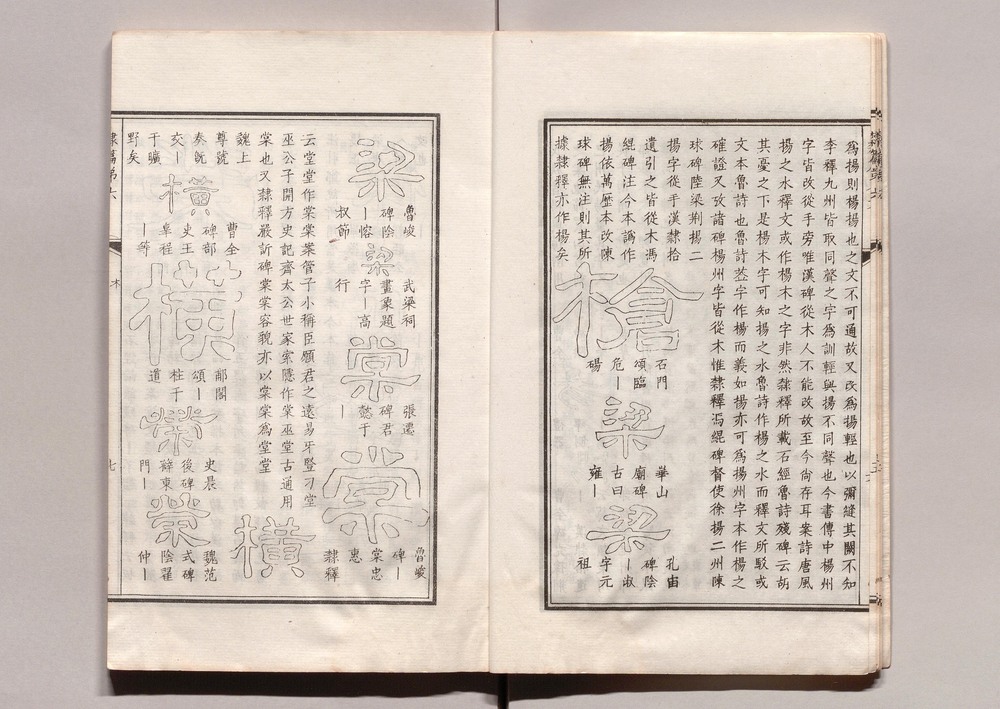 爲揚則楊揚也之文不可通故又改爲揚輕也以彌縫其闕不知
李釋九州皆取同聲之字爲訓輕與揚不同聲也今書傳中楊州
字皆改從手旁唯漢碑從木人不能改故至今尙存耳案詩唐風
揚之水釋文或作楊木之字非然隸釋所載石經魯詩殘碑云胡
其憂之下是楊木字可知揚之水魯詩作楊之水而釋文所駁或
文本魯詩也魯詩茲字作楊而義如揚亦可爲揚州字本作楊之
確證又攷諸碑楊州字皆從木惟隸釋馮緄碑督使徐揚二州陳
球碑陸梁荆揚二
揚字從手漢隸拾
遺引之皆從木馮
緄碑注今本譌作
揚依萬歷本改陳
球碑無注則其所
據隸釋亦作楊矣
槍
石門
頌臨
危一
碭
梁
華山
廟碑
古曰
雍一
梁
孔宙
碑陰
一淑
字元
祖
梁
魯峻
碑陰
一㝐
叔節
梁
武梁祠
畫象題
字一高
行
棠
張遷
碑君
懿于
一
棠
魯峻
碑一
棠忠
惠
隸釋
云堂堂作棠棠案管子小稱臣願君之遠易牙豎刁堂
巫公子開方史記齊太公世家索隱作棠巫堂古通用
棠也又隸釋嚴訢碑棠棠容貌亦以棠棠爲堂堂
橫
魏上
尊號
奏旣
交一
于曠
野矣
橫
曹全
碑部
史王
皐程
一等
橫
郙閣
頌一
柱于
道
榮
史晨
後碑
辥東
門一
榮
魏范
式碑
陰翟
仲一
隸篇弟六
木
七